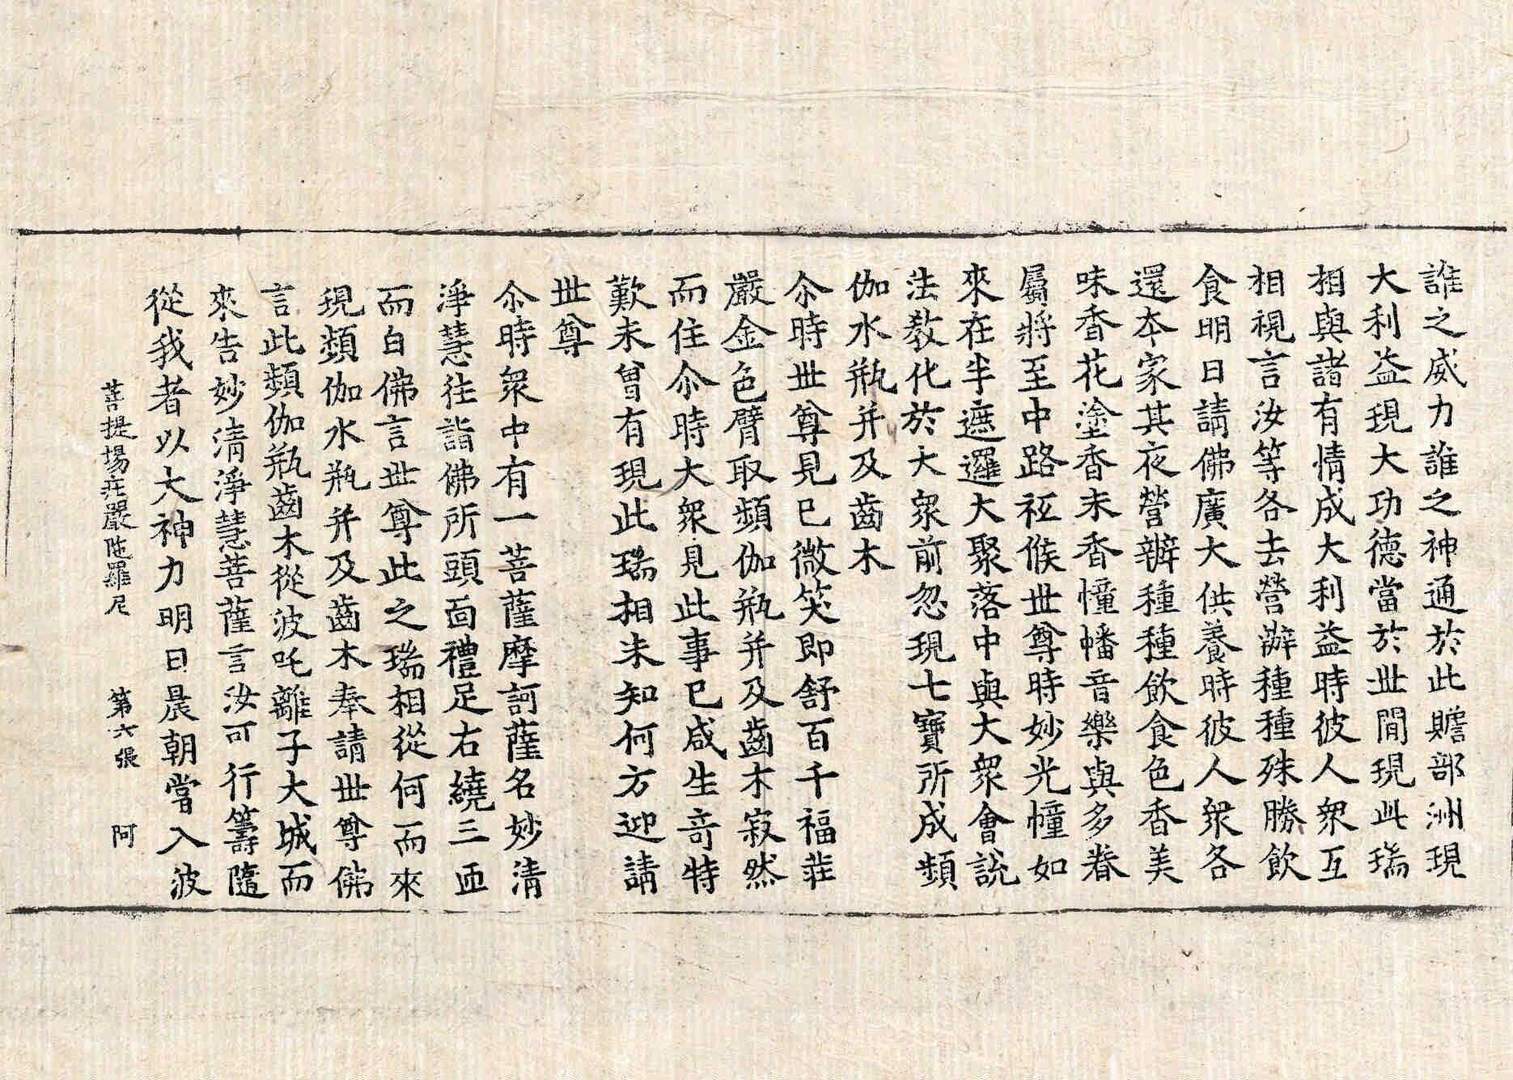 誰之威力誰之神通於此贍部洲現
大利益現大功德當於丗間現此瑞
相與諸有情成大利益時彼人衆互
相視言汝等各去營辦種種殊勝飲
食明日請佛廣大供養時彼人衆各
還本家其夜營辦種種飲食色香美
味香花塗香末香幢幡音樂與多眷
屬將至中路祗候丗尊時妙光幢如
來在半遮邏大聚落中與大衆會說
法教化於大衆前忽現七寶所成頻
伽水瓶并及齒木
尒時丗尊見已微笑即舒百千福莊
嚴金色臂取頻伽瓶并及齒木寂然
而住尒時大衆見此事已咸生竒特
歎未曾有現此瑞相未知何方迎請
丗尊
尒時衆中有一菩薩摩訶薩名妙清
淨慧往詣佛所頭面禮足右繞三匝
而白佛言丗尊此之瑞相從何而來
現頻伽水瓶并及齒木奉請丗尊佛
言此頻伽瓶齒木從波吒離子大城而
來告妙清淨慧菩薩言汝可行籌隨
從我者以大神力明日晨朝當入波
菩提場莊嚴陁羅尼 第六張 阿